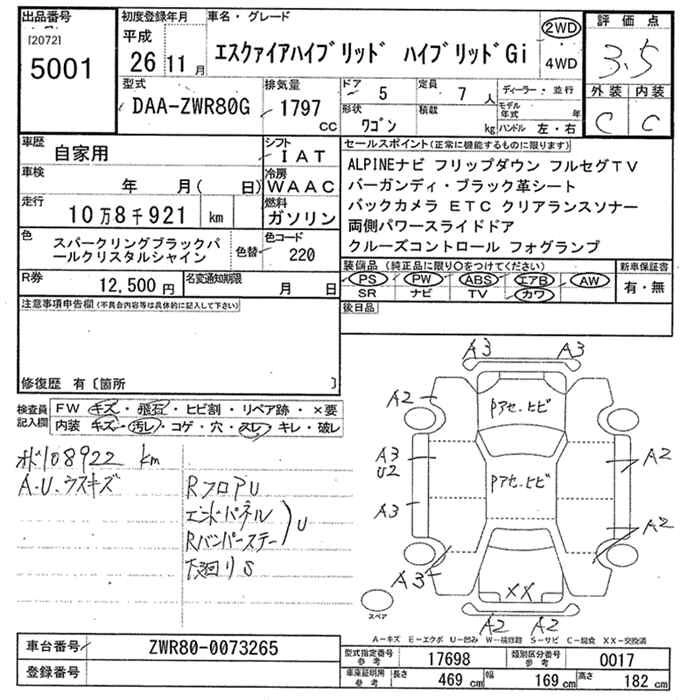 出品番号
[2072]
5001
初度登録年月
平成
26 11月
車名・グレード
エスクァイアハイブリッド ハイブリッドGi
2WD
4WD
評価点
3.5
外装 内装
C C
型式
DAA-ZWR80G
排気量
1797
CC
ドア
5
定員
7 人
形状
ワゴン
積載
kg
ディーラー・並行
モデル年式 年
ハンドル 左・右
車歴
自家用
シフト
IAT
車検
年 月( 日)
冷房
WAAC
走行
10万8千921 km
燃料
ガソリン
色
スパークリングブラックパ
ールクリスタルシャイン
色替
色コード
220
R券
12,500円
名変通知期限
月 日
セールスポイント(正常に機能するものに限ります)
ALPINEナビ フリップダウン フルセグTV
バーガンディ・ブラック革シート
バックカメラ ETC クリアランスソナー
両側パワースライドドア
クルーズコントロール フォグランプ
装備品 (純正品に限り〇をつけてください)
PS PW ABS エアB AW
SR ナビ TV カワ
新車保証書
有・無
注意事項申告欄(不具合内容等は具体的に記入して下さい)
後日品
修復歴 有〔箇所 〕
検査員
記入欄
FW キズ・飛石・ヒビ割・リペア跡・×要
内装 キズ・汚レ・コゲ・穴・スレ・キレ・破レ
ボド108922 km
A.U.ウスキズ
RフロアU
エンドパネル
Rバンパーステー
U
下廻りS
A3 A3
A2
Pアセ.ヒビ
A3
U2
A2
Pアセ.ヒビ
A3
A2
A3
XX
A2 A2
スペア
A-キズ E-エクボ U-凹み W-補修跡 S-サビ C-腐食 XX-交換済
車台番号
ZWR80-0073265
登録番号
型式指定番号
参考
17698
類別区分番号
参考
0017
車庫証明用
参考
長さ
469 cm
幅
169 cm
高さ
182 cm